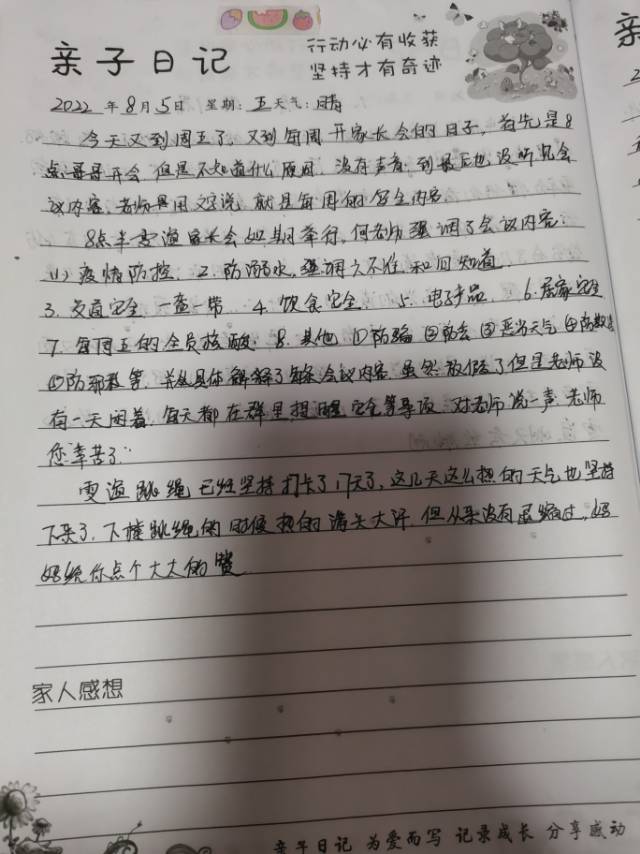 亲子日记
行动必有收获
坚持才有奇迹
亲
2022年8月5日 星期:五 天气:晴
今天又到周五了,又到每周开家长会的日子,首先是8
点哥哥开会,但是不知道什么原因,没有声音,到最后也没听见会
议内容,老师是用文字说就是每周的安全内容。
8点半雯渲家长会如期举行,何老师强调了会议内容:
(1)疫情防控. 2.防溺水,强调六不准和四知道.
3.交通安全一查一带 4.饮食安全. 5.电子产品. 6.居家安全
7.每周五的全员核酸. 8.其他 ①防骗 ②防雷 ③恶劣天气 ④防欺凌
⑤防邪教等.并且具体解释了每条会议内容,虽然放假了但是老师没
有一天闲着,每天都在群里提醒安全等事项,对老师说一声:老师
您辛苦了"
雯渲跳绳已经坚持打卡了17天了,这几天这么热的天气也坚持
下来了,下楼跳绳的时候热的满头大汗,但从来没有退缩过,妈
妈给你点个大大的赞
家人感想
亲子日记 为爱而写 记录成长 分享感动